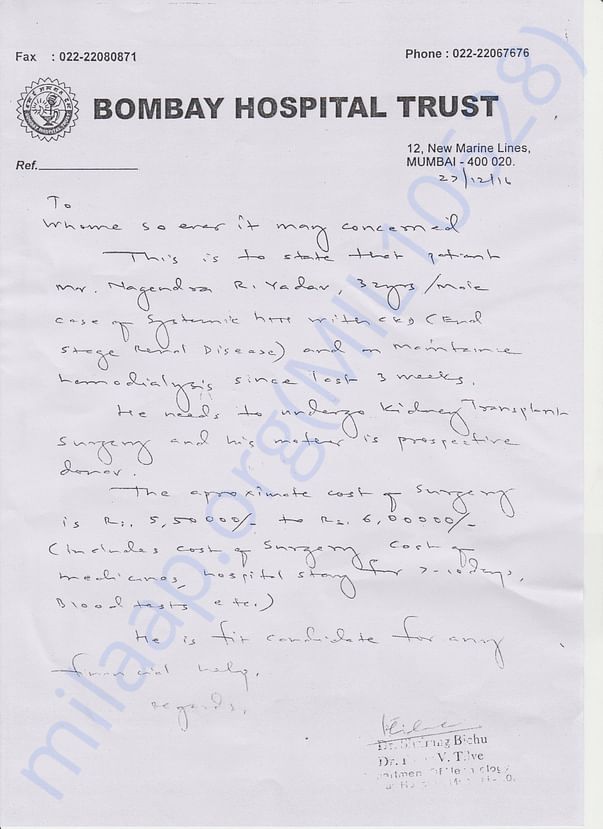 Fax : 022-22080871
Phone : 022-22067676
BOMBAY HOSPITAL TRUST
12, New Marine Lines,
MUMBAI - 400 020.
Ref.
27/12/16
To
Whome so ever it may concerned
This is to state that patient
Mr. Nagendra R. Yadav, 32yrs/Male
case of Systemic HTN with CKD (End
stage Renal Disease) and on maintaince
hemodialysis since last 3 weeks.
He needs to undergo Kidney Transplant
Surgery and his mother is prospective
donor.
The aproximate cost of Surgery
is Rs. 5,50000/- to Rs. 6,00000/-
(includes cost of Surgery, cost of
medicines, hospital stay for 7-10 days,
Blood tests etc.)
He is fit candidate for any
financial help.
regards,
Bichu
Dr. V.
milaap.org(MIL110628)